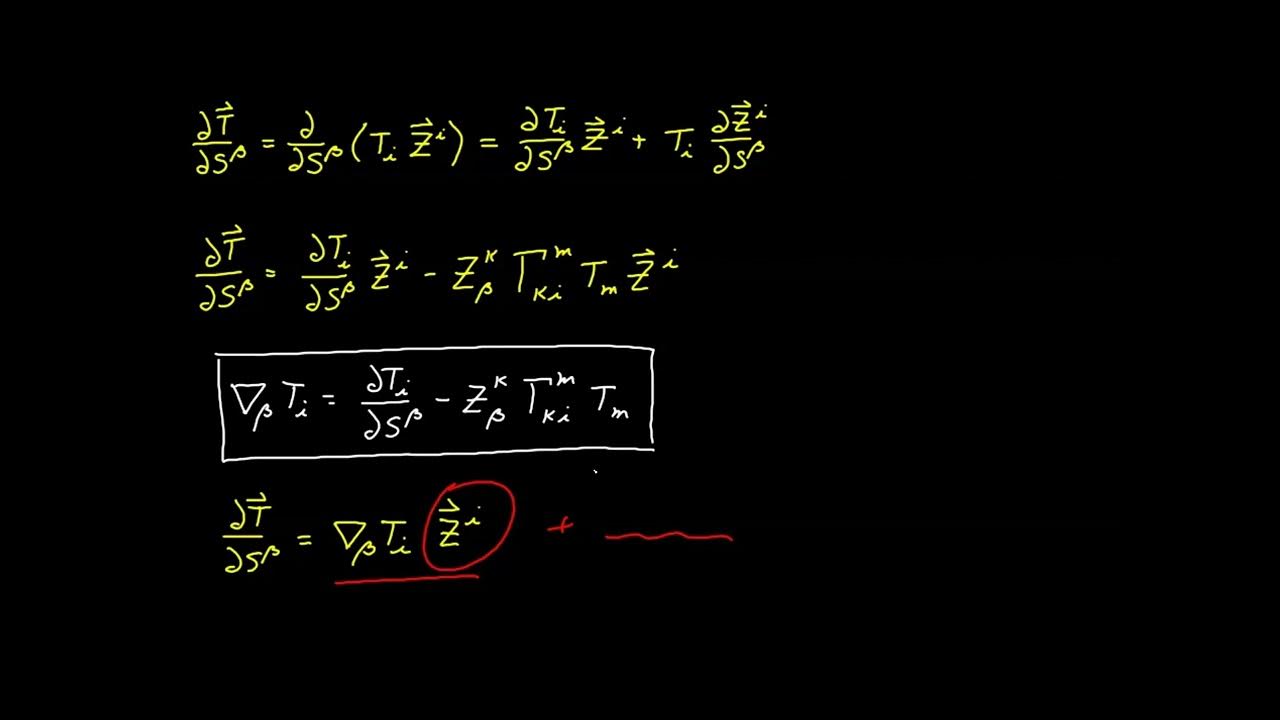 ∂T⃗/∂S^β = ∂/∂S^β (T_i Z⃗^i) = ∂T_i/∂S^β Z⃗^i + T_i ∂Z⃗^i/∂S^β
∂T⃗/∂S^β = ∂T_i/∂S^β Z⃗^i - Z^κ_β Γ^m_κi T_m Z⃗^i
∇_β T_i = ∂T_i/∂S^β - Z^κ_β Γ^m_κi T_m
∂T⃗/∂S^β = ∇_β T_i Z⃗^i +